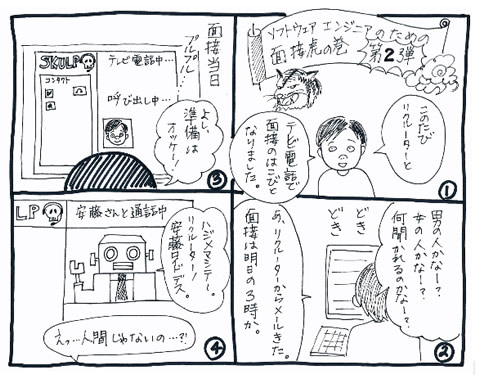 ソフトウェア エンジニアのための
面接虎の巻
第2弾
このたび
リクルーターと
テレビ電話で
面接のはこびと
なりました。
①
男の人かなー?
女の人かなー?
何聞かれるのかなー?
どき
どき
あ、リクルーターからメールきた。
面接は明日の3時か。
②
面接当日
プルプル!
SKULP
テレビ電話中…
コンタクト
呼び出し中…
よし、
準備は
オッケー!
③
LP
安藤さんと通話中
ハジメマシテー。
リクルーターノ
安藤ロイドデス。
えっ…人間じゃないの…?!
④